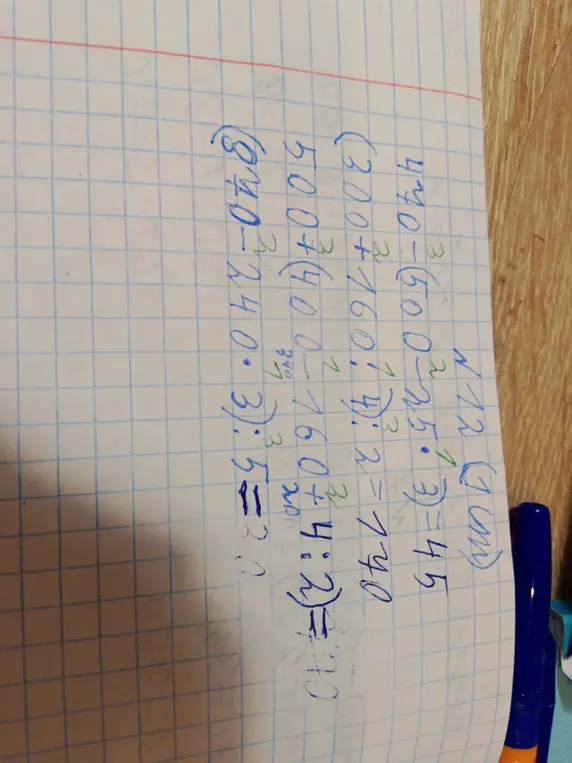 №12 (1 ст)
470-(500-25·3)=45
(300+160:4):2=170
500+(400-160+4:2)=
(870-240·3):5=